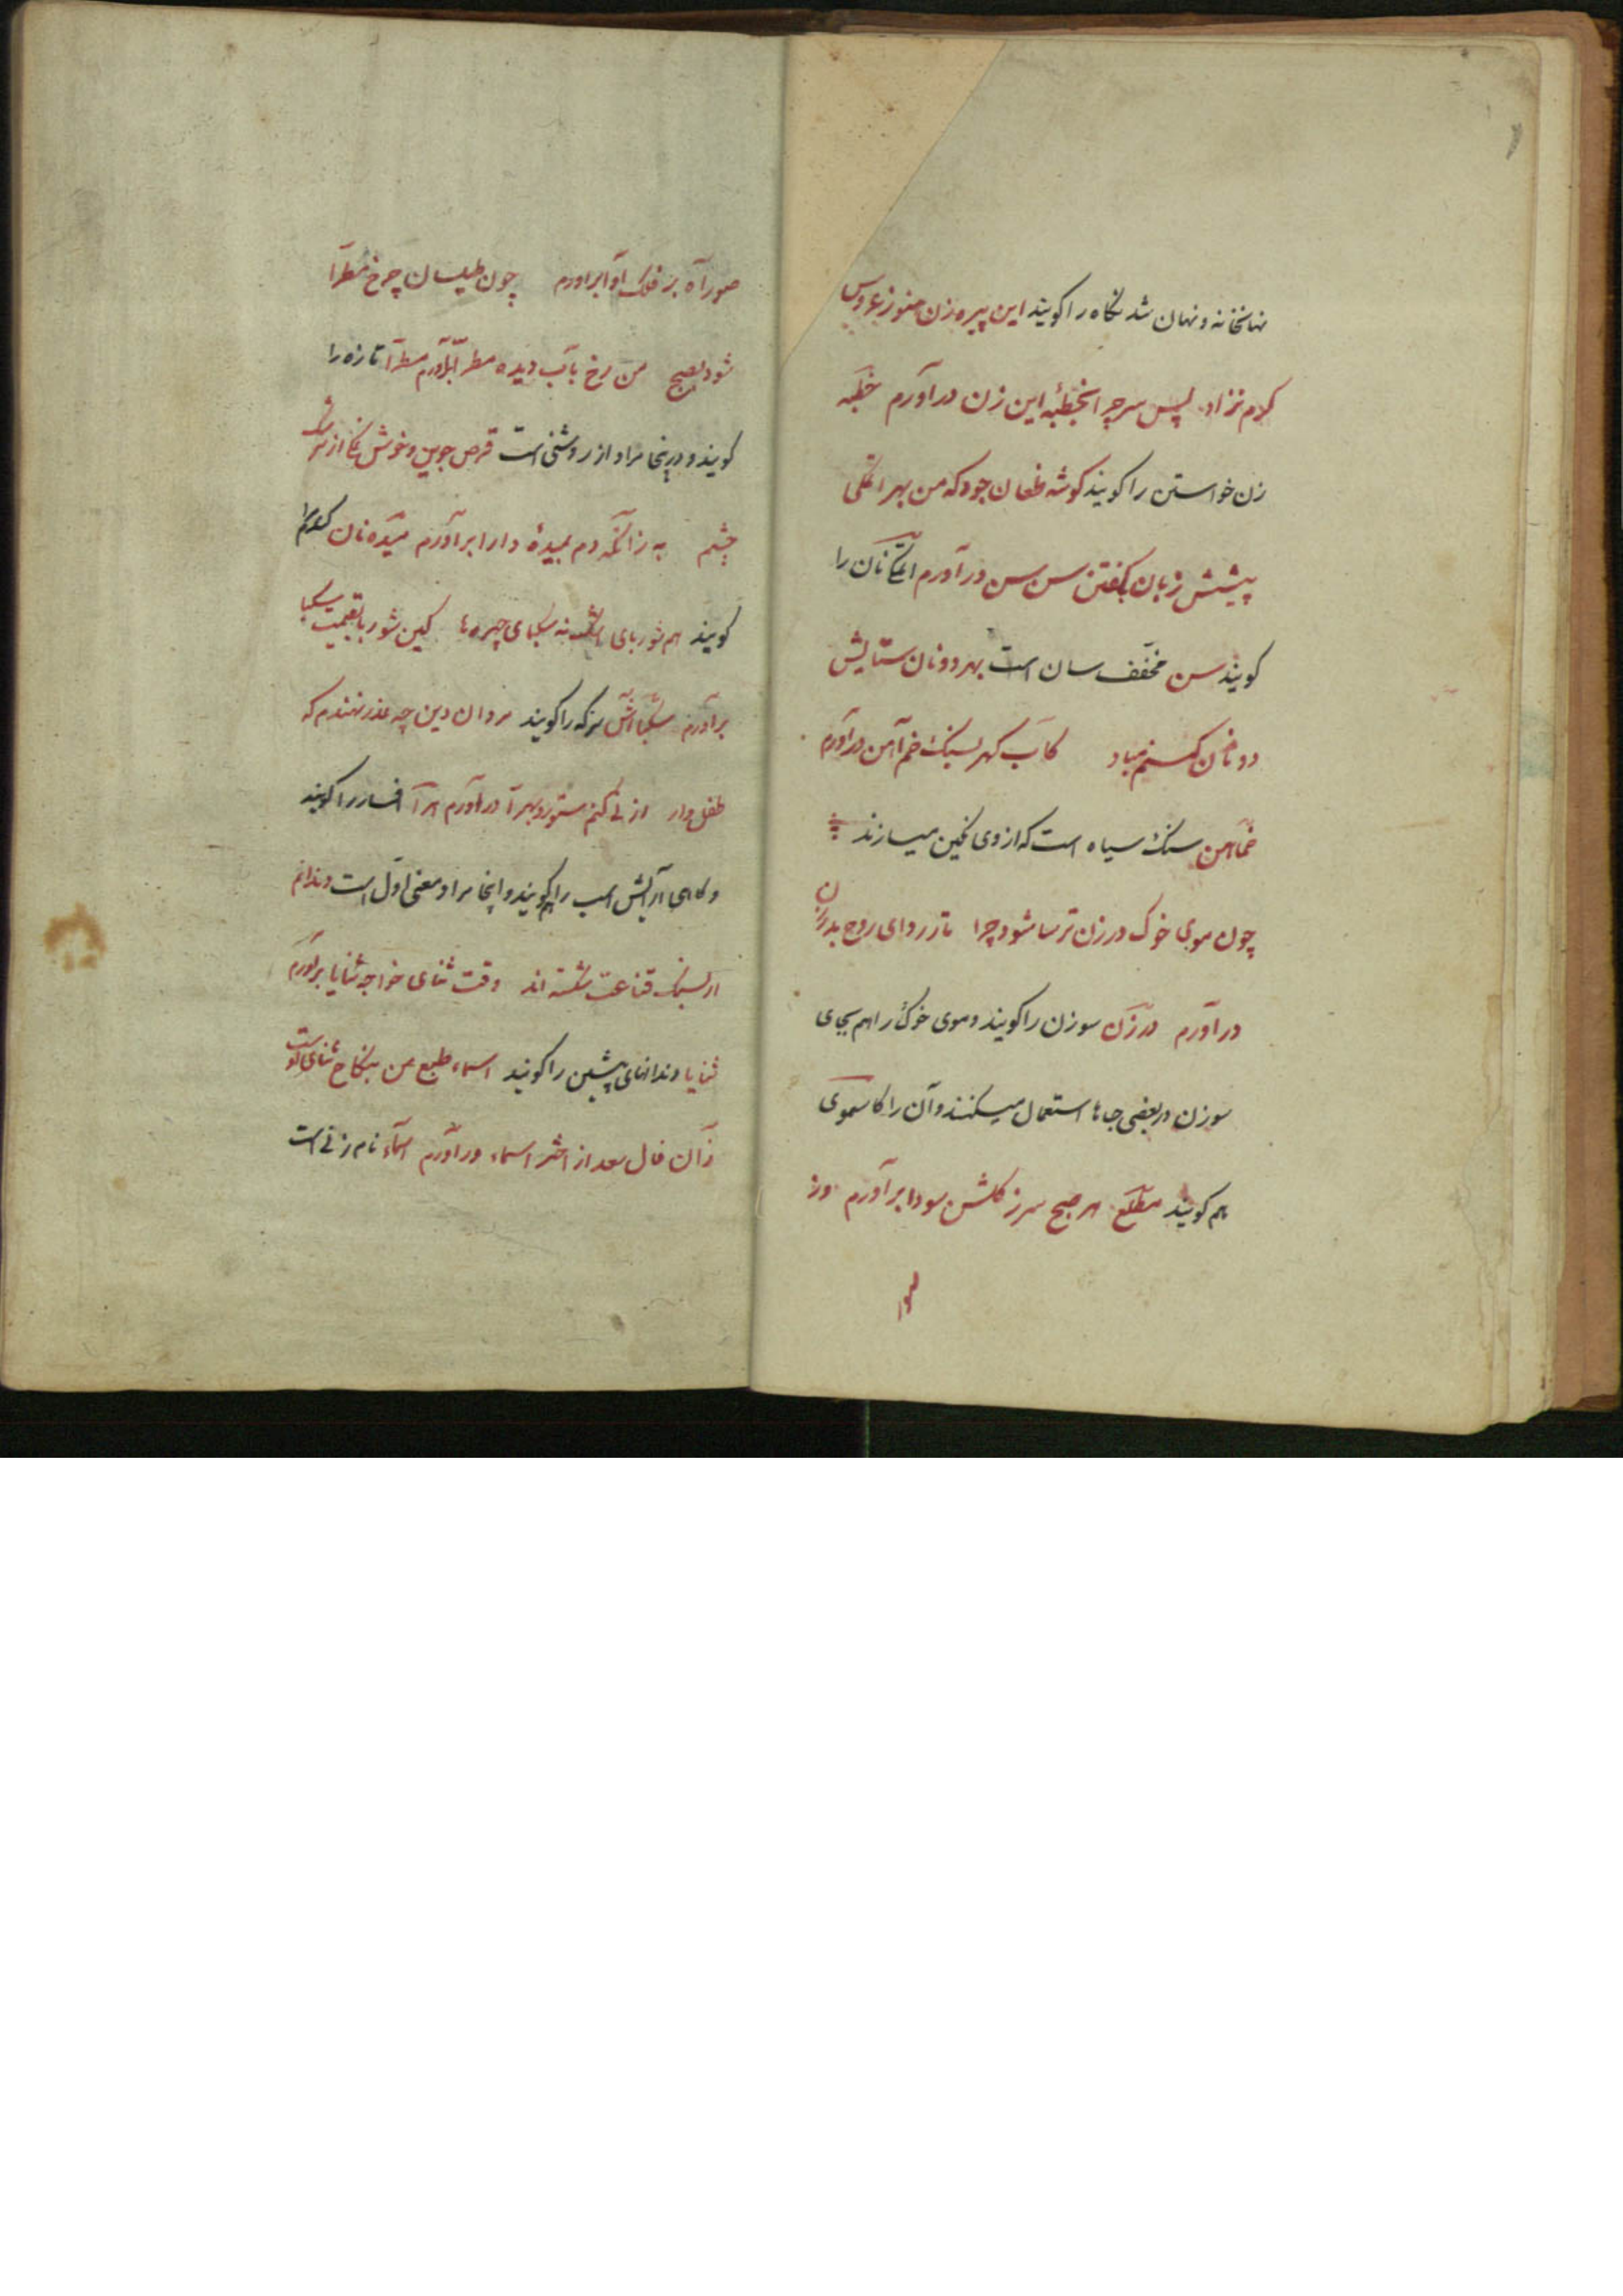 نهانخانه و نهان شد نگاه را گویند این پیره زن هنوز عروس
کرم نزاد پس سر چرا بخطبهٔ این زن درآورم خطبه
زن خواستن را گویند گوشه طغان جود که من بهر اتمکی
پیشش زبان بگفتن سن سن درآورم اتمک نان را
گویند سن مخفف سان است بهر دو نان ستایش
دونان کنم مباد کاب گهر بسنگ خماهن درآورم
خماهن سنگ سیاه است که از وی نگین میسازند
چون موی خوک در زن ترسا شود چرا تار ردای روح بدرزن
درآورم درزن سوزن را گویند و موی خوک را هم بجای
سوزن در بعضی جاها استعمال میکنند و آن را کاسموی
هم گویند مطلع هر صبح سر ز گلشن سودا برآورم وز
صور آه بر فلک آوا برآورم چون طیلسان چرخ مطرا
شود بصبح من رخ بآب دیده مطرا برآورم مطرا تازه را
گویند و درینجا مراد از روشنی است قرص جوین و خوش نمکی از سرشک
چشم به زانکه دم بمیدهٔ دارا برآورم میده نان گندم را
گویند هم شوربای اشک نه سکبای چهره‌ها کین شوربا بقیمت سکبا
برآورم سکبا آش سرکه را گویند مردان دین چه عذر نهندم که
طفل وار از نی کنم ستور و بهرا درآورم هرا افسار را گویند
و گاهی آرایش اسب را هم گویند و اینجا مراد معنی اول است دندانم
ار بسنگ قناعت شکسته اند وقت ثنای خواجه ثنایا برآورم
ثنایا دندانهای پیشین را گویند اسماء طبع من بنکاح ثنای اوست
زان فال سعد از اختر اسماء درآورم اسماء نام زنی است